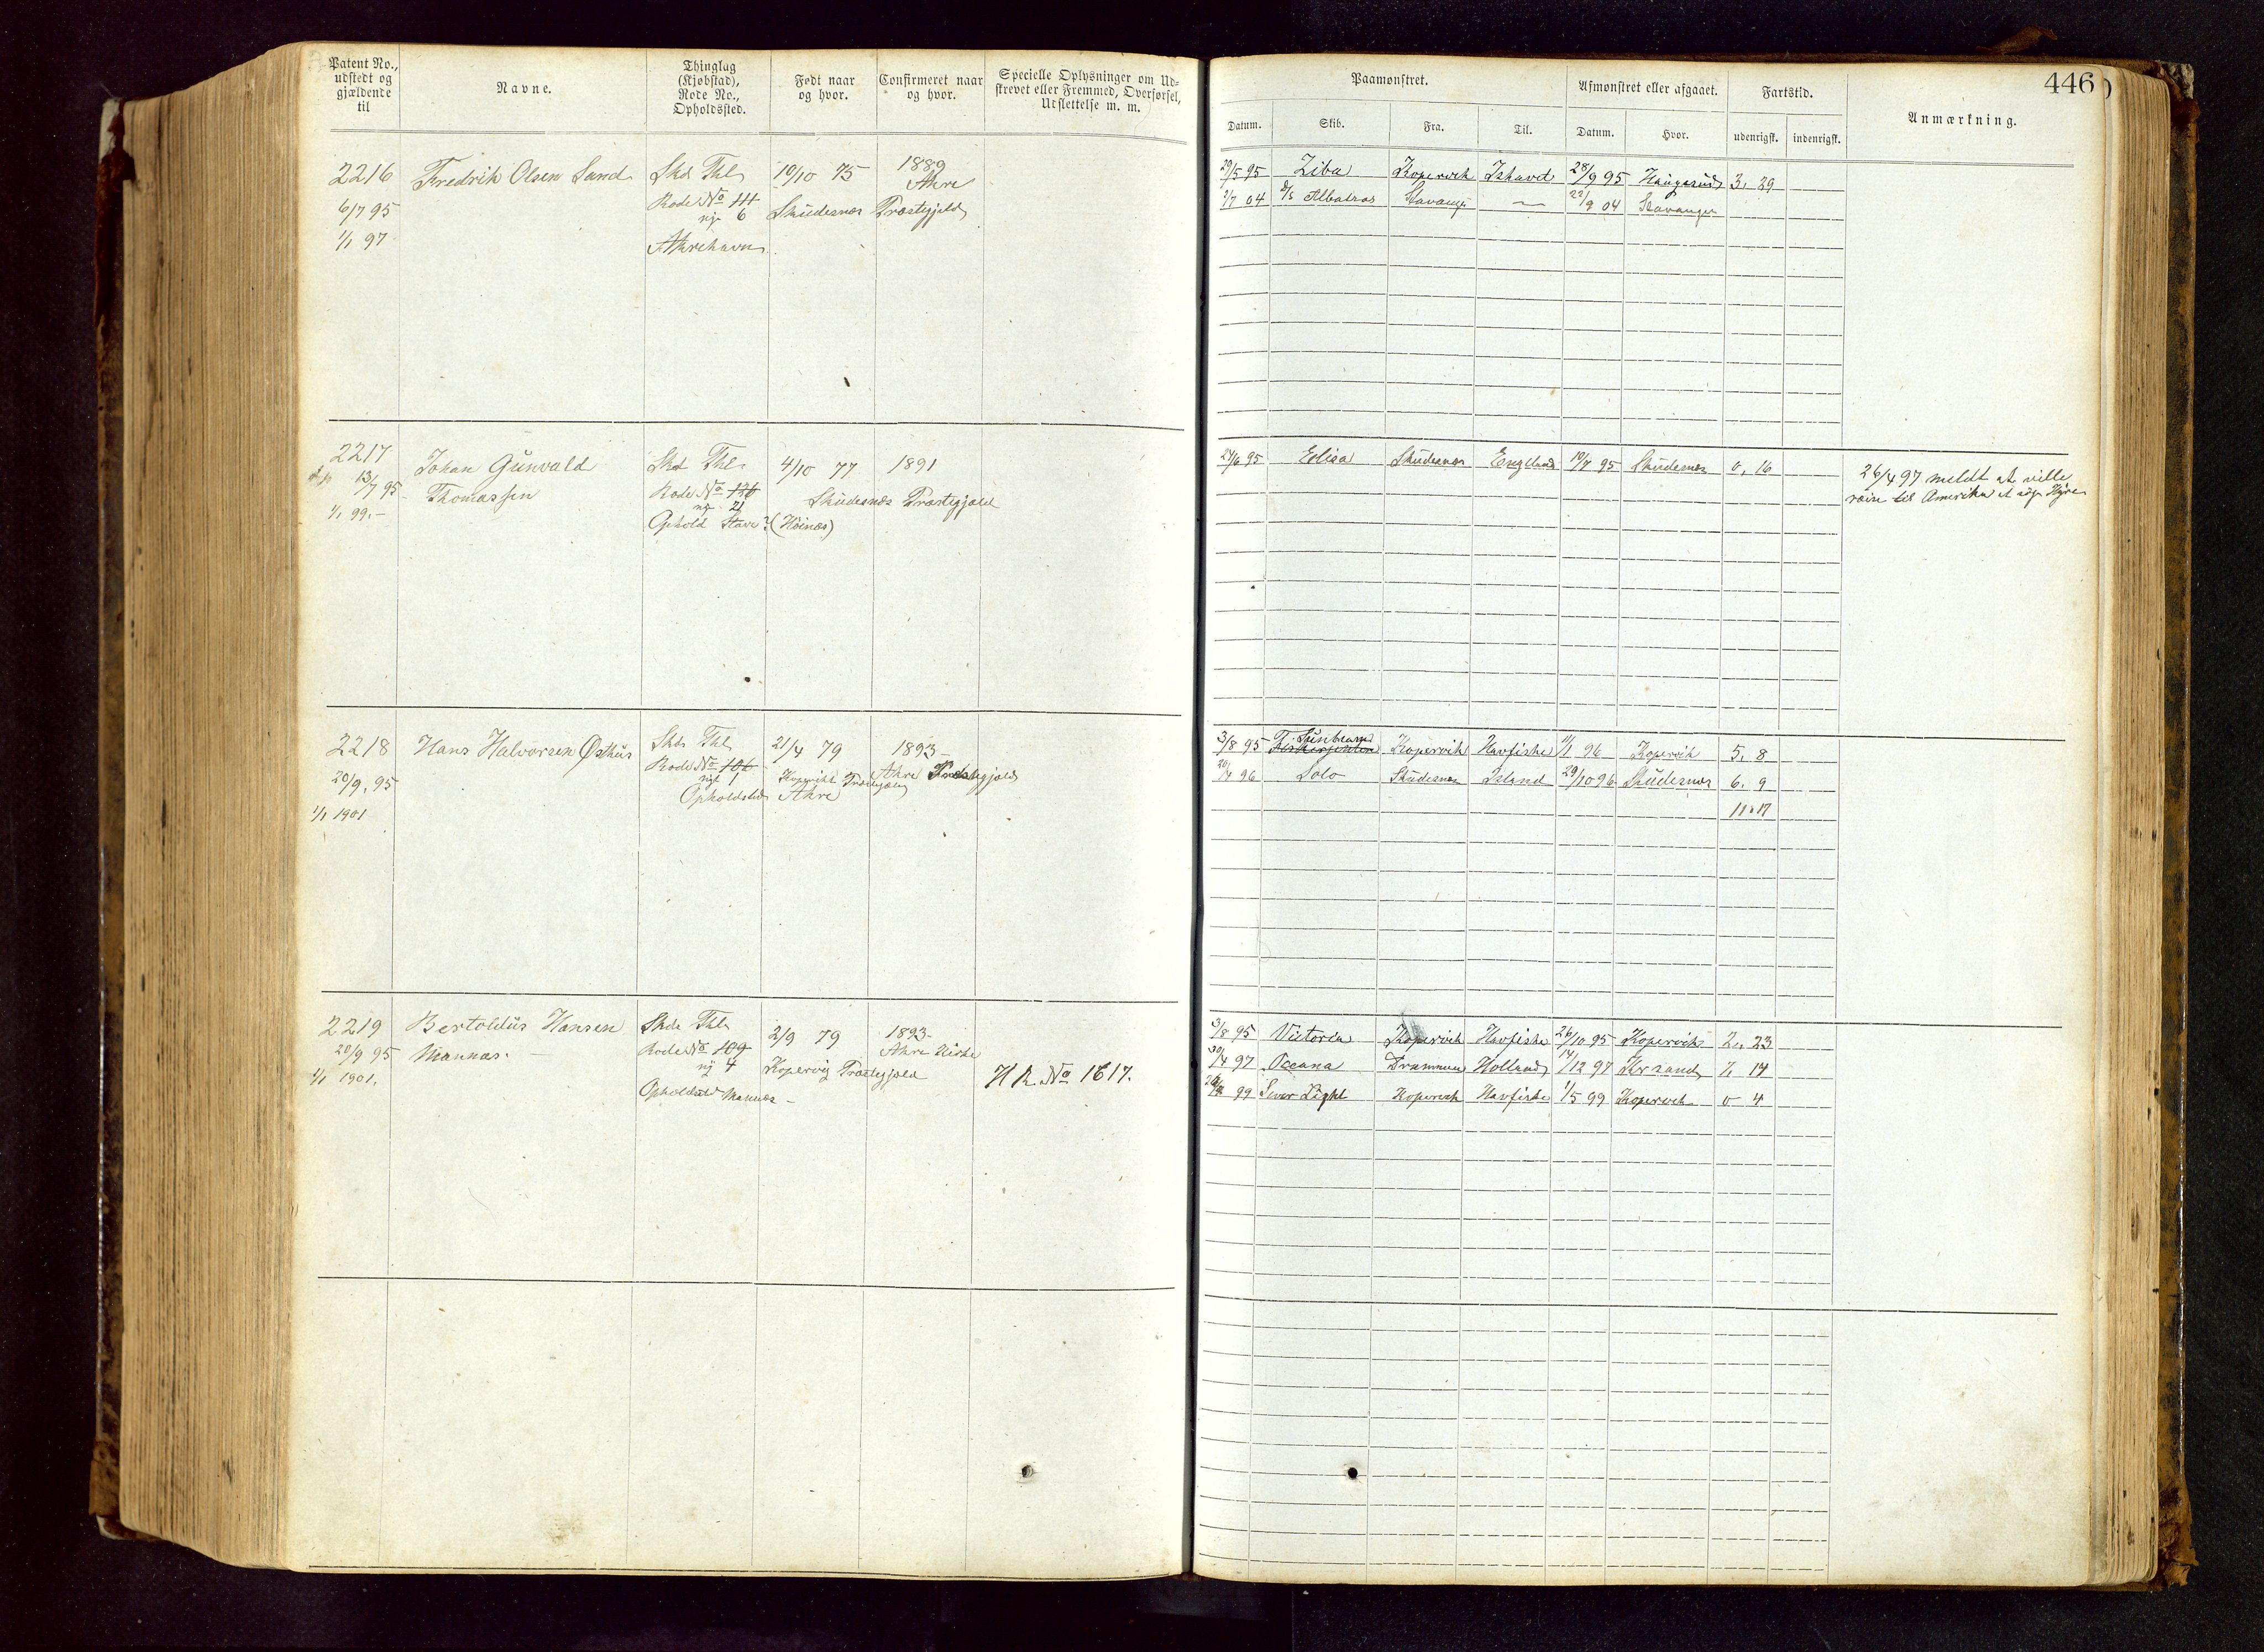 446
Patent No., udstedt og gjældende til
Navne.
Thinglag (Kjøbstad), Rode No., Opholdssted.
Født naar og hvor.
Confirmeret naar og hvor.
Specielle Oplysninger om Udskrevet eller Fremmed, Overførsel, Udslettelse m. m.
Paamønstret.
Afmønstret eller afgaaet.
Fartstid.
Anmærkning.
Datum. Skib. Fra. Til. Datum. Hvor. udenrigsk. indenrigsk.
2216 Fredrik Olsen Sund Skds Thl 10/10 75 1889
Akre
6/7 95 Rode No 111 Skudesnæs Præstegjeld
ny 6
1/1 97 Akrehavn
29/5 95 Ziba Kopervik Ishavet 28/9 95 Haugesund 3, 29
1/7 04 D/S Albatros Stavanger — 22/9 04 Stavanger
2217 Johan Gunvald Skd Thl 4/10 77 1891
13/7 95 Thomassen Rode No 136 Skudesnæs Præstegjæld
ny 21
1/1 99.- Ophold Stave? (Höinæs)
24/6 95 Elisa Skudesnæs England 10/7 95 Skudesnæs 0, 16
26/4 97 meldt at ville
reise til Amerika at søge Hyre
2218 Hans Halvorsen Østhus Skds Thl 21/4 79 1893
20/9. 95 Rode No 106 Kopervik Præstegjæld Akre
nyt 1
1/1 1901 Opholdsted Akre
Sunbeam
3/8 95 Kopervik Havfiske 11/1 96 Kopervik 5, 8
20/4 96 Solo Skudesnæs Island 29/10 96 Skudesnæs 6, 9
11, 17
2219 Bertoldus Hansen Skds Thl 2/9 79 1893
20/9 95 Mannæs. Rode No 109 Kopervig Præstegjæld Akre Kirke
ny 4
1/1 1901. Opholdsted Mannæs
H R. No 1617.
3/8 95 Victoria Kopervik Havfiske 26/10 95 Kopervik 2, 23
30/4 97 Oceana Drammen Holland 14/12 97 Krsand 7, 14
99 Sever Light Kopervik Havfiske 1/5 99 Kopervik 0 4